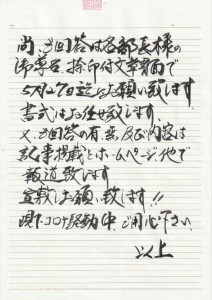 尚、ご回答は各部長様の
御署名、捺印付文章書面で
5月27日迄にお願い致します
書式はお任せ致します。
又、ご回答の有、無及び内容は
記事掲載とホームページ他で
報道致します
宜敷くお願い致します!!
現下コロナ騒動中、ご用心下さい
以上